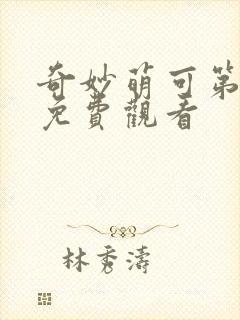 奇妙萌可第
免費觀看
林秀濤